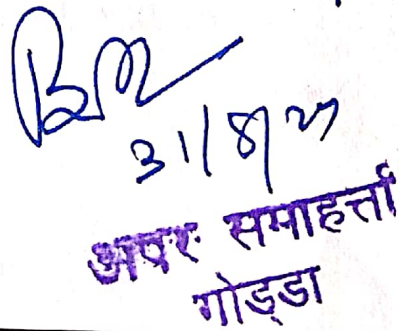 31/8/27
अपर समाहर्त्ता
गोड्डा